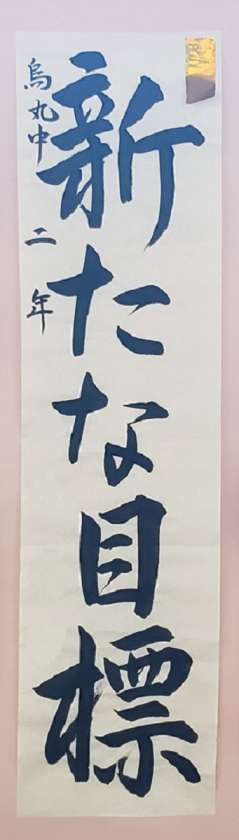 新たな目標
烏丸中 二年